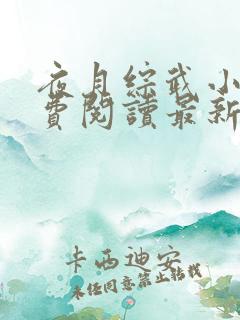 夜月綜武小
費閱讀最新
卡西迪安
未经同意禁止转载